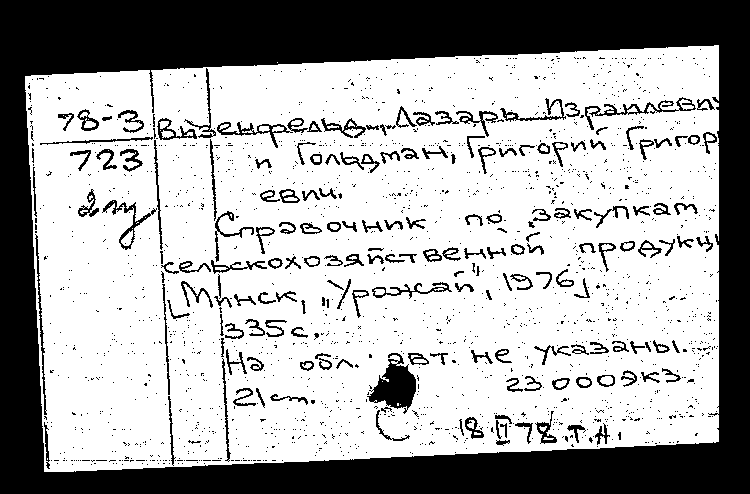 78-3 Визенфельд, Лазарь Израилеви
723 и Гольдман, Григорий Григор
евич.
Справочник по закупкам
сельскохозяйственной продукц
[Минск, "Урожай", 1976].
335с.
На обл. авт. не указаны.
21 ст. 23000экз.
18.II 78.Т.А.